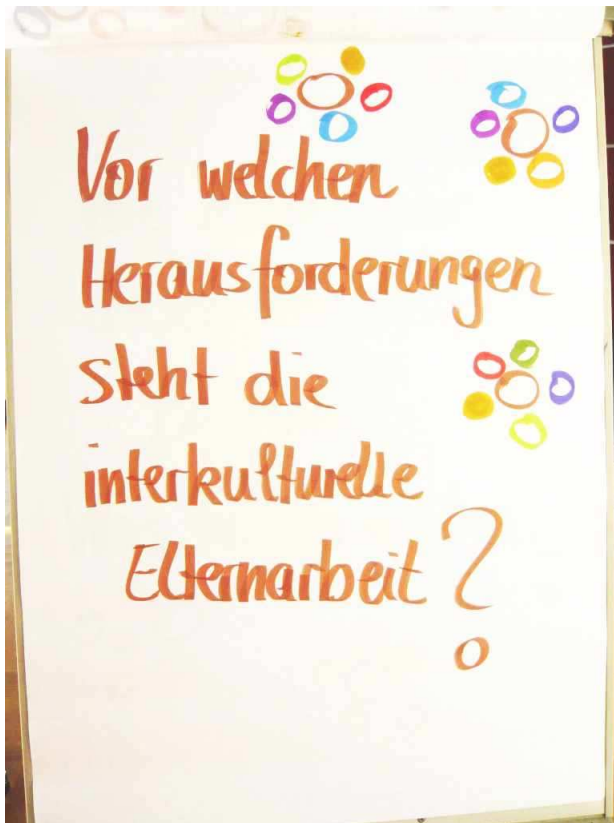 Vor welchen
Herausforderungen
steht die
interkulturelle
Elternarbeit?